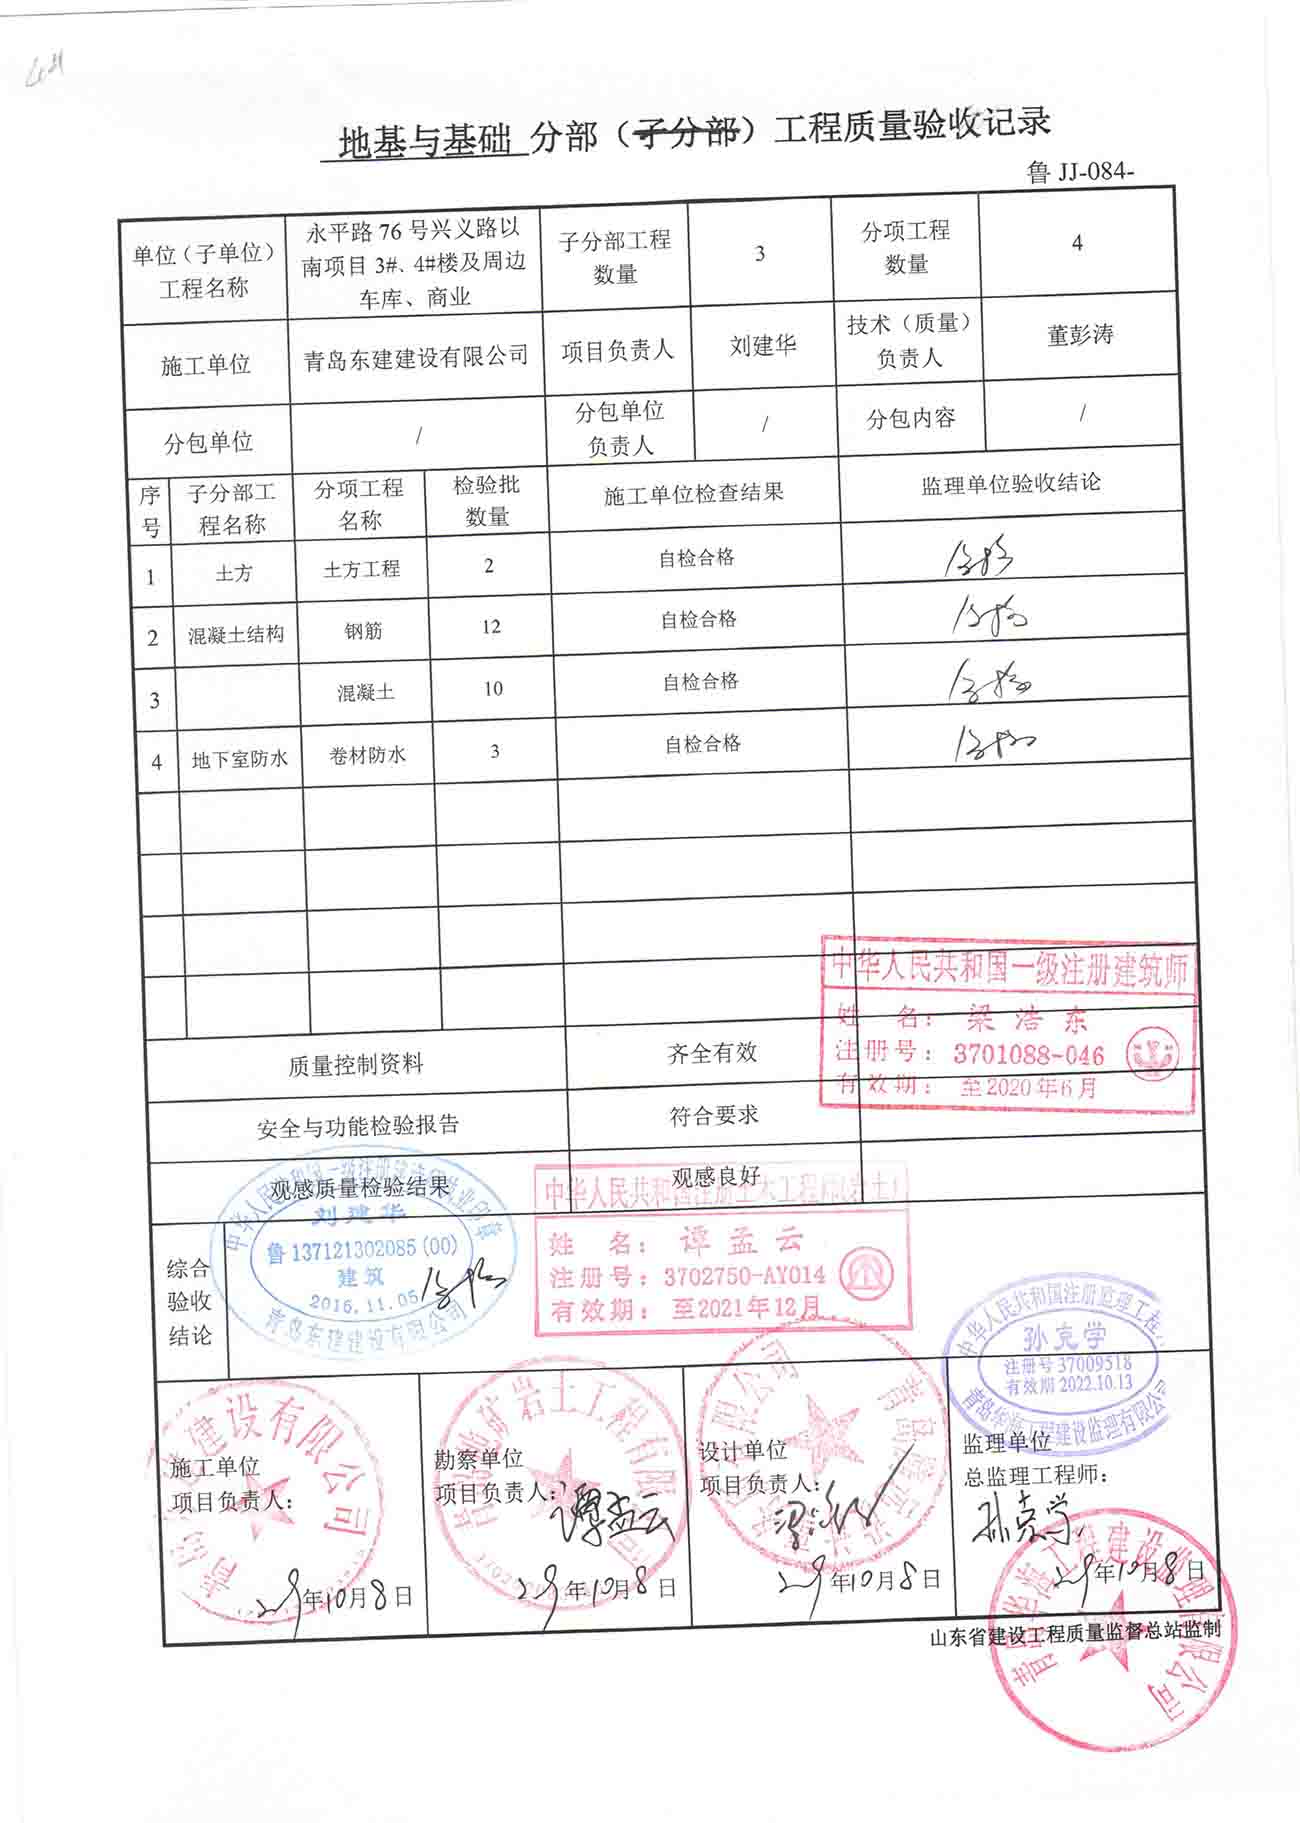 地基与基础 分部（子分部）工程质量验收记录
鲁 JJ-084-
单位（子单位）工程名称 永平路 76 号兴义路以南项目 3#、4#楼及周边车库、商业 子分部工程数量 3 分项工程数量 4
施工单位 青岛东建建设有限公司 项目负责人 刘建华 技术（质量）负责人 董彭涛
分包单位 / 分包单位负责人 / 分包内容 /
序号 子分部工程名称 分项工程名称 检验批数量 施工单位检查结果 监理单位验收结论
1 土方 土方工程 2 自检合格 合格
2 混凝土结构 钢筋 12 自检合格 合格
3 混凝土 10 自检合格 合格
4 地下室防水 卷材防水 3 自检合格 合格
中华人民共和国一级注册建筑师
姓 名：梁浩东
注册号：3701088-046
有效期：至2020年6月
质量控制资料 齐全有效
安全与功能检验报告 符合要求
观感质量检验结果 观感良好
中华人民共和国一级注册建造师执业印章
刘建华
鲁137121302085(00)
建筑
2016.11.05
青岛东建建设有限公司
中华人民共和国注册土木工程师(岩土)
姓 名：谭孟云
注册号：3702750-AY014
有效期：至2021年12月
综合验收结论 合格
中华人民共和国注册监理工程师
孙克学
注册号37009518
有效期2022.10.13
施工单位
项目负责人：
年10月8日
勘察单位
项目负责人：谭孟云
年10月8日
设计单位
项目负责人：
年10月8日
监理单位
总监理工程师：
孙克学
年10月8日
山东省建设工程质量监督总站监制